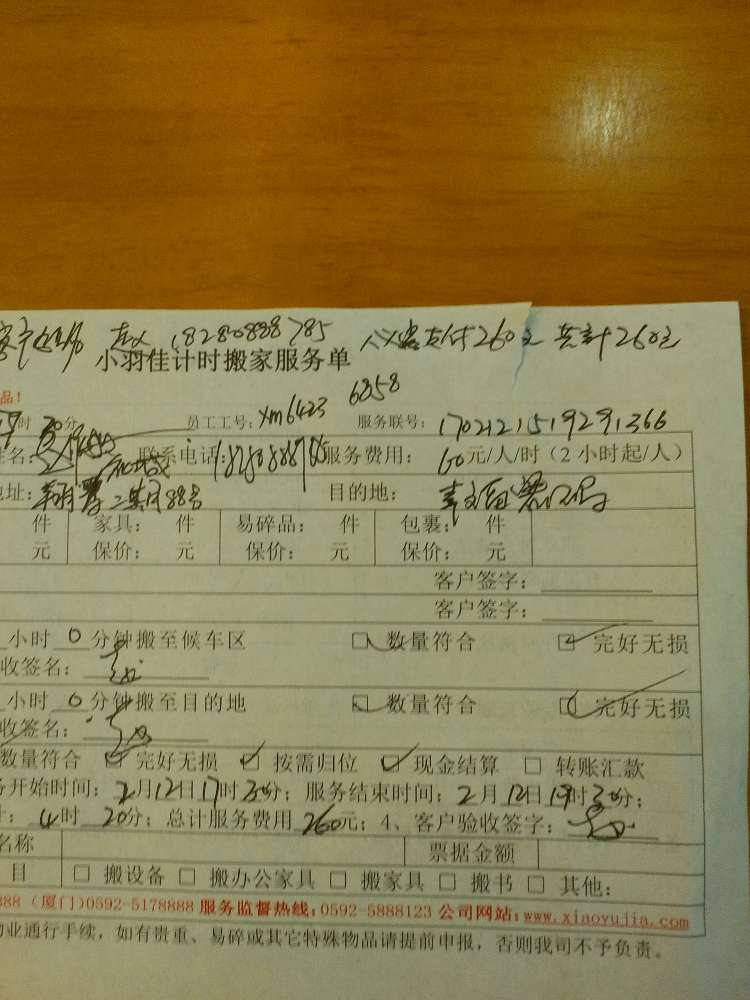 18280888785 支付260元 共计260元
小羽佳计时搬家服务单
品！ 6858
时 分 员工工号：xm6423 服务联号：1702121519291366
姓名： 联系电话： 服务费用：60元/人/时（2小时起/人）
地址： 二期88号 目的地：
件 家具： 件 易碎品： 件 包裹： 件
元 保价： 元 保价： 元 保价： 元
客户签字：
客户签字：
小时 0 分钟搬至候车区 数量符合 完好无损
收签名：
小时 0 分钟搬至目的地 数量符合 完好无损
收签名：
数量符合 完好无损 按需归位 现金结算 转账汇款
务开始时间：2月12日17时30分；服务结束时间：2月12日19时30分；
4时20分；总计服务费用 260元；4、客户验收签字：
名称 票据金额
目 搬设备 搬办公家具 搬家具 搬书 其他：
888（厦门）0592-5178888 服务监督热线：0592-5888123 公司网站：www.xiaoyujia.com
物业通行手续，如有贵重、易碎或其它特殊物品请提前申报，否则我司不予负责。